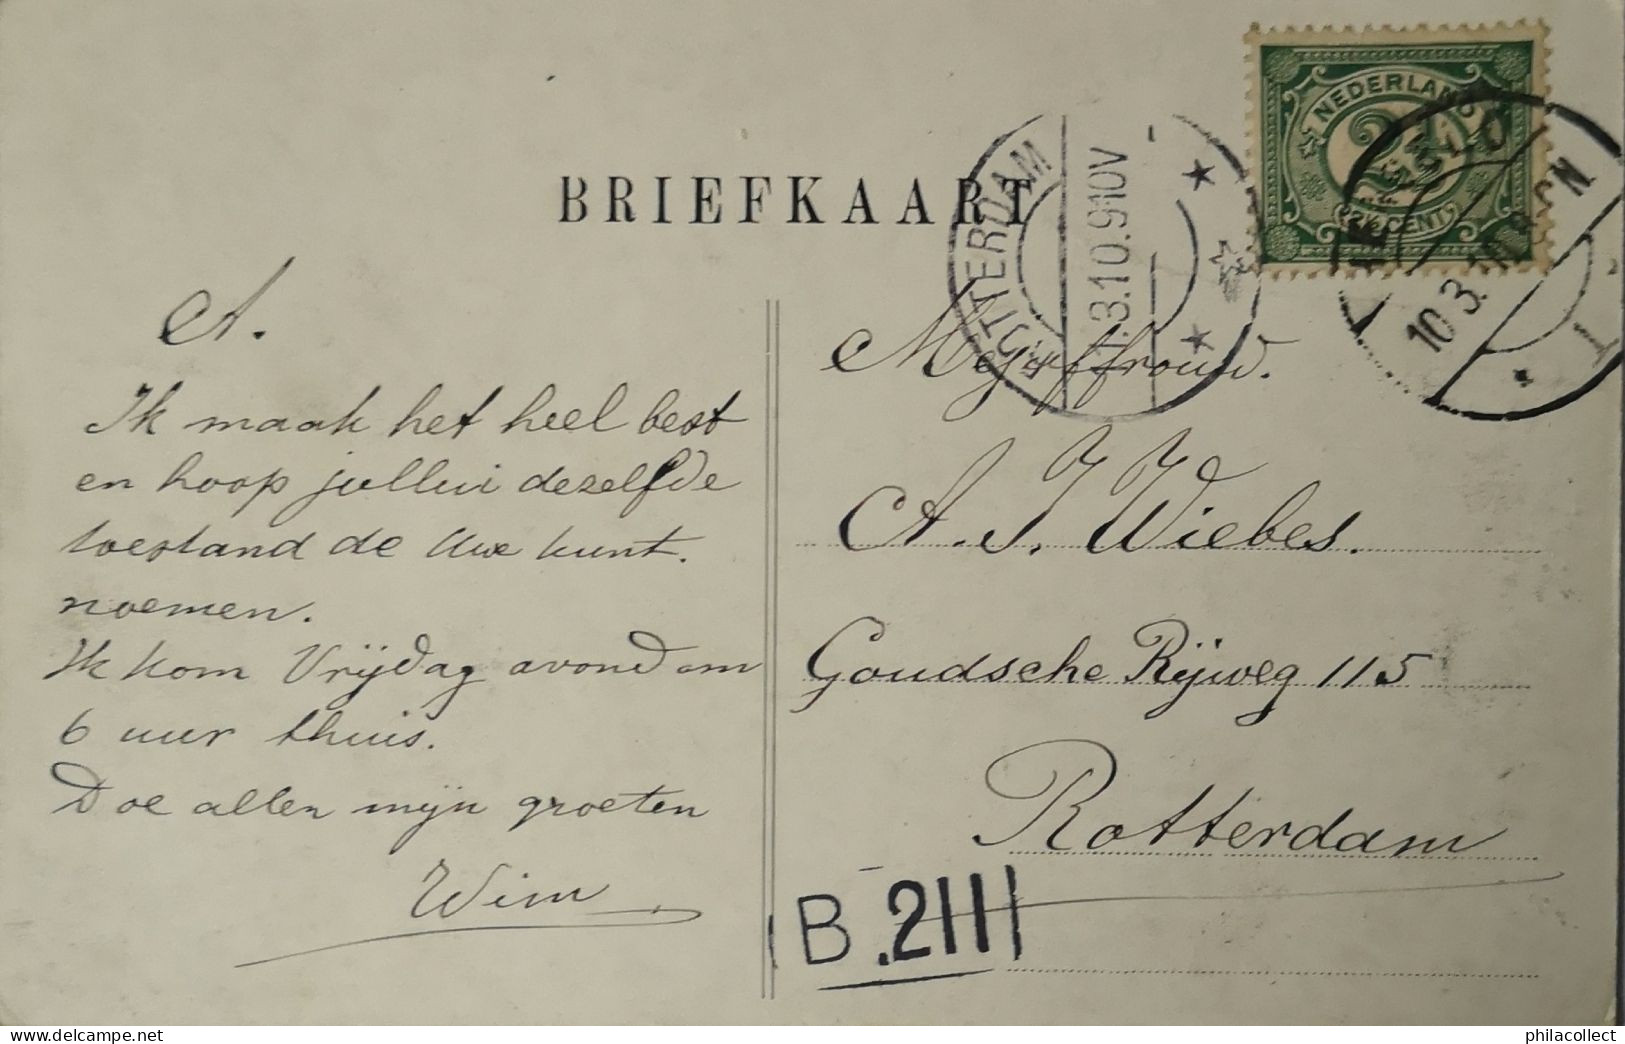 BRIEFKAART
NEDERLAND
2½ CENT
ROTTERDAM
11.3.10.9-10V
10.3.10
A.
Ik maak het heel best
en hoop jullui dezelfde
toestand de Uwe kunt.
noemen.
Ik kom Vrijdag avond om
6 uur thuis.
Doe allen mijn groeten
Wim
Mejuffrouw.
A. J. Wiebes.
Goudsche Rijweg 115
Rotterdam
B.211
philacollect